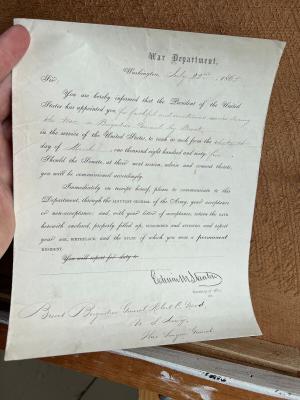 War Department,
Washington, July
Sir:
You are hereby informed that the President of the United
States has appointed you for faithful and meritorious services during
the War, a Brigadier General by Brevet,
in the service of the United States, to rank as such from the
day of March one thousand eight hundred and sixty five.
Should the Senate, at their next session, advise and consent thereto,
you will be commissioned accordingly.
Immediately on receipt hereof, please to communicate to this
Department, through the ADJUTANT GENERAL of the Army, your acceptance
or non-acceptance; and, with your letter of acceptance, return the OATH
herewith enclosed, properly filled up, SUBSCRIBED and ATTESTED, and report
your AGE, BIRTHPLACE, and the STATE of which you were a PERMANENT
RESIDENT.
You will report for duty to
Edwin M Stanton
Secretary of War.
Brevet Brigadier General Robert C. Wood,
U. S. Army,
Surgeon General